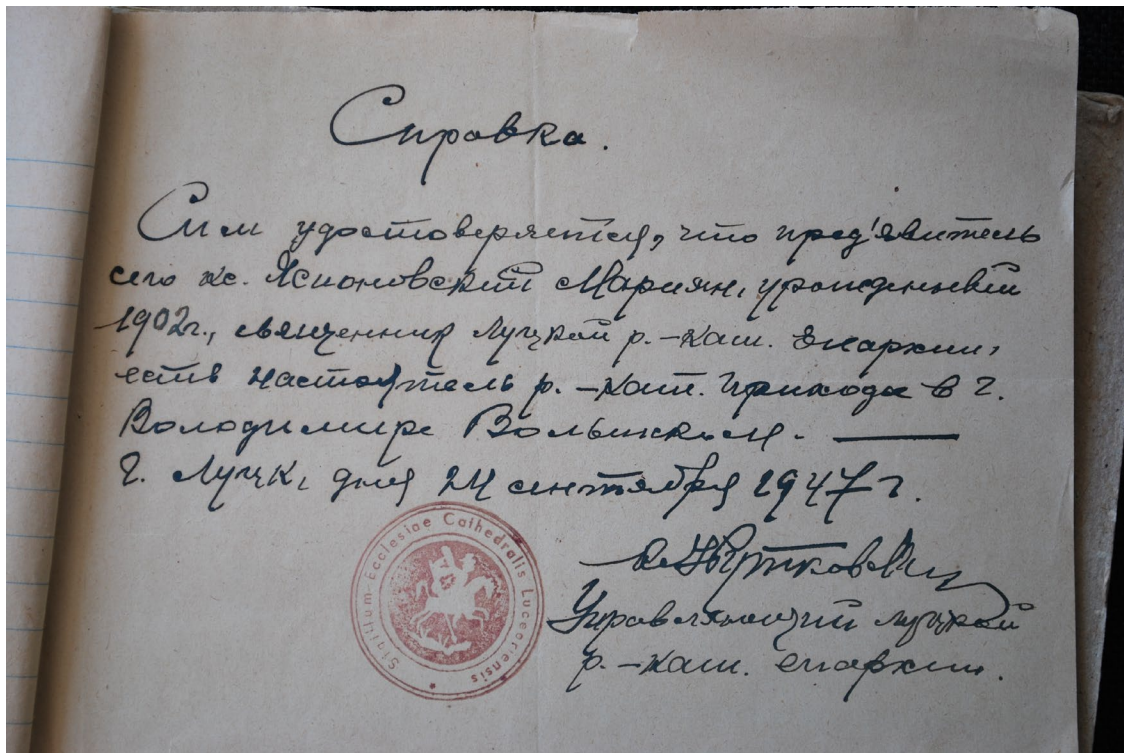 Справка.
Сим удостоверяется, что пред'явитель
сего кс. Ясионовский Мариян, урожденный
1902г., священник Луцкой р.-кат. Епархии,
есть настоятель р.-кат. прихода в г.
Володимире Волынском.
г. Луцк, дня 24 сентября 1947 г.
Управляющий луцкой
р.-кат. епархии.
Sigillum Ecclesiae Cathedralis Luceoriensis